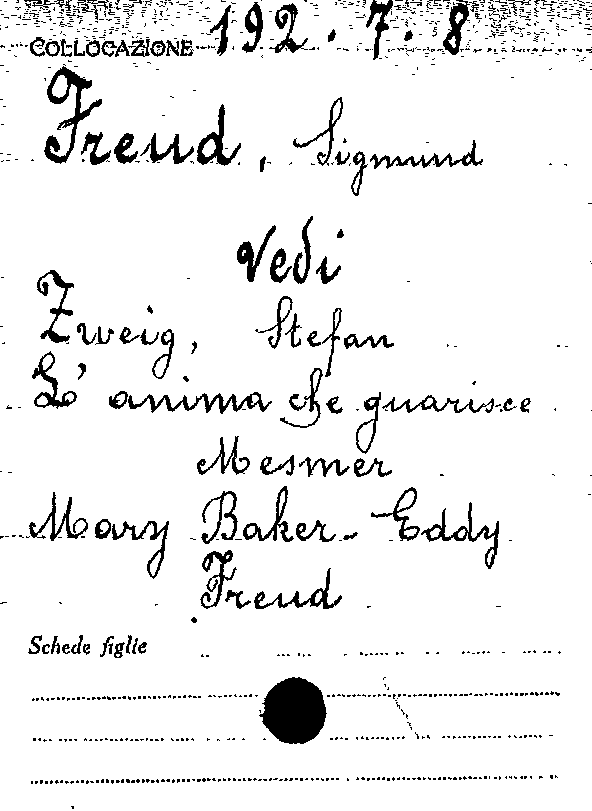 COLLOCAZIONE 192.7.8
Freud, Sigmund
Vedi
Zweig, Stefan
L'anima che guarisce
Mesmer
Mary Baker-Eddy
Freud
Schede figlie